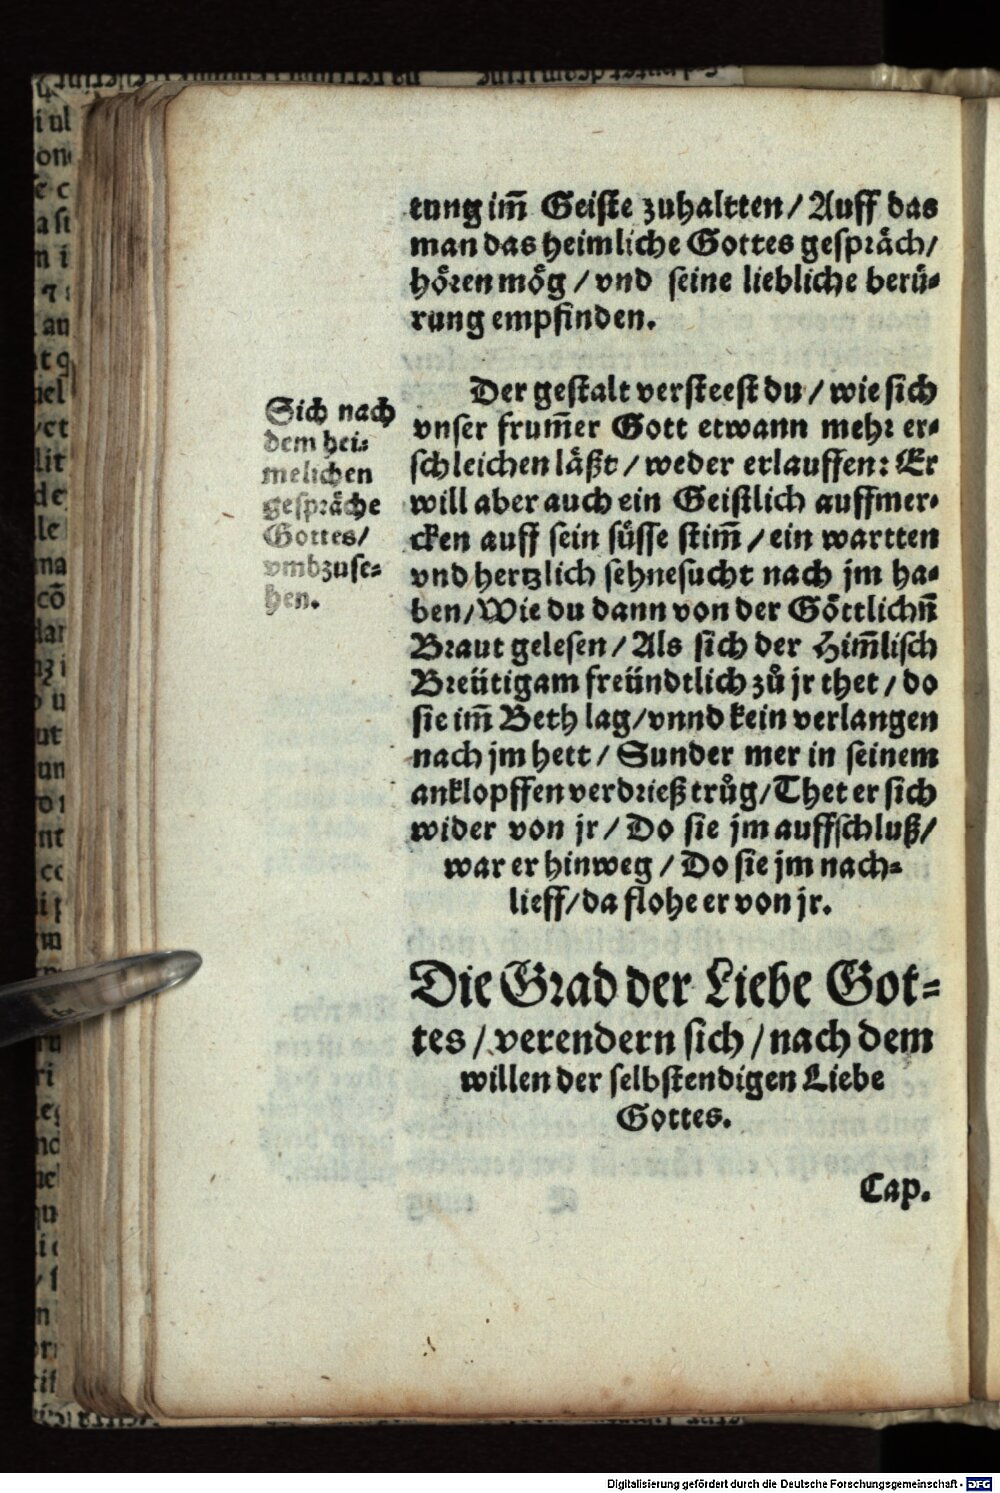 tung im̃ Geiste zuhaltten/ Auff das
man das heimliche Gottes gespräch/
hören mög / vnd seine liebliche berü-
rung empfinden.
Der gestalt versteest du / wie sich
vnser frum̃er Gott etwann mehr er-
schleichen läßt / weder erlauffen: Er
will aber auch ein Geistlich auffmer-
cken auff sein süsse stim̃ / ein wartten
vnd hertzlich sehnesucht nach jm ha-
ben/ Wie du dann von der Göttlichñ
Braut gelesen / Als sich der Him̃lisch
Breütigam freündtlich zů jr thet / do
sie im̃ Beth lag/ vnnd kein verlangen
nach jm hett / Sunder mer in seinem
anklopffen verdrieß trůg/ Thet er sich
wider von jr / Do sie jm auffschluß/
war er hinweg / Do sie jm nach-
lieff/ da flohe er von jr.
Sich nach
dem hei-
melichen
gespräche
Gottes/
vmbzuse-
hen.
Die Grad der Liebe Got-
tes / verendern sich / nach dem
willen der selbstendigen Liebe
Gottes.
Cap.
Digitalisierung gefördert durch die Deutsche Forschungsgemeinschaft - DFG